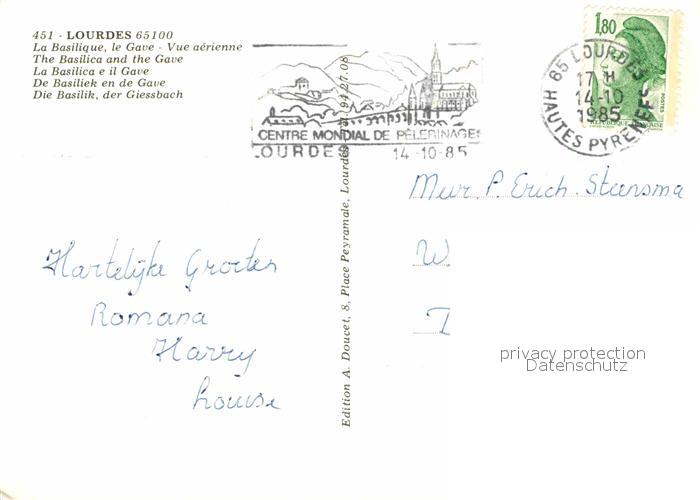 451 - LOURDES 65100
La Basilique, le Gave - Vue aérienne
The Basilica and the Gave
La Basilica e il Gave
De Basiliek en de Gave
Die Basilik, der Giessbach
CENTRE MONDIAL DE PÈLERINAGES
LOURDES 14-10-85
1,80
POSTES
65 LOURDES
17 H
14-10
1985
HAUTES PYRENEES
Edition A. Doucet, 8, Place Peyramale, Lourdes 94.27.08
Mevr. P. Erich. Steensma
W
I
Hartelijke Groeten
Romana
Harry
Louise
privacy protection
Datenschutz